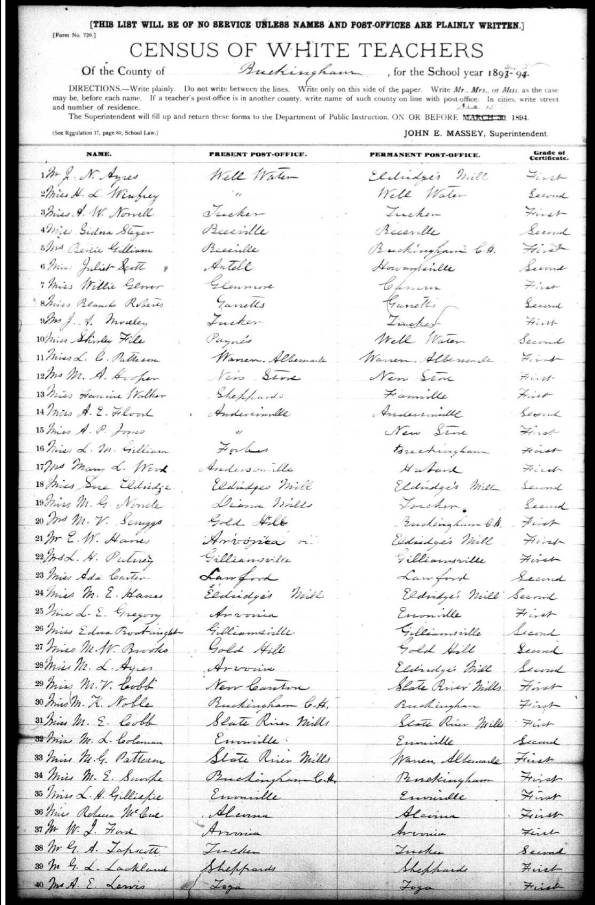 [THIS LIST WILL BE OF NO SERVICE UNLESS NAMES AND POST-OFFICES ARE PLAINLY WRITTEN.]
[Form No. 720.]
CENSUS OF WHITE TEACHERS
Of the County of Buckingham, for the School year 1893-94.
DIRECTIONS.—Write plainly. Do not write between the lines. Write only on this side of the paper. Write Mr., Mrs., or Miss, as the case
may be, before each name. If a teacher's post-office is in another county, write name of such county on line with post-office. In cities, write street
and number of residence.
The Superintendent will fill up and return these forms to the Department of Public Instruction, ON OR BEFORE MARCH 30 1894.
(See Regulation 17, page 80, School Law.) JOHN E. MASSEY, Superintendent.
NAME. PRESENT POST-OFFICE. PERMANENT POST-OFFICE. Grade of Certificate.
1 Mr J. N. Ayres Well Water Eldridge's Mill First
2 Miss H. L. Winfrey " Well Water Second
3 Miss A. W. Norvell Tucker Tucker First
4 Miss Edna Steger
5 Mrs Gilliam Buckingham C.H. First
6 Miss Juliet Scott Howardsville Second
7 Miss Willie Glover Glenmore First
8 Miss Blanche Roberts Garretts Garretts Second
9 Mrs J. A. Moseley Tucker Tucker First
10 Miss Shirley File Payne's Well Water Second
11 Miss L. C. Patteson Warren, Albemarle Warren, Albemarle First
12 Mrs M. A. Cooper New Store New Store First
13 Miss Fannie Walker Sheppards Farmville First
14 Miss A. E. Flood Andersonville Andersonville Second
15 Miss A. P. Jones " New Store First
16 Miss L. M. Gilliam Forbes Buckingham First
17 Mrs Mary L. Word Andersonville First
18 Miss Sue Eldridge Eldridge's Mill Eldridge's Mill Second
19 Miss M. G. Diana Mills Tucker Second
20 Mrs M. V. Scruggs Gold Hill Buckingham C.H. First
21 Mr E. W. Hanes Arvonia Eldridge's Mill First
22 Mrs L. H. Putney Gilliamsville Gilliamsville First
23 Miss Ada Carter Lawford Lawford Second
24 Miss M. E. Hanes Eldridge's Mill Eldridge's Mill Second
25 Miss L. E. Gregory Arvonia Enonville First
26 Miss Edna Gilliamsville Gilliamsville Second
27 Miss M. W. Brooks Gold Hill Gold Hill Second
28 Miss M. L. Ayres Arvonia Eldridge's Mill Second
29 Miss M. V. Cobb New Canton Slate River Mills First
30 Miss M. K. Noble Buckingham C.H. Buckingham First
31 Miss M. E. Cobb Slate River Mills Slate River Mills First
32 Miss M. L. Coleman Enonville Enonville Second
33 Miss M. G. Patteson Slate River Mills Warren Albemarle First
34 Miss M. E. Swope Buckingham C.H. Buckingham First
35 Miss L. H. Gillispie Enonville Enonville First
36 Miss Alcoma Alcoma First
37 Mr W. J. Ford Arvonia Arvonia First
38 Mr G. A. Tapscott Tucker Tucker Second
39 Mr G. L. Lackland Sheppards Sheppards First
40 Mrs A. E. Lewis Toga Toga First